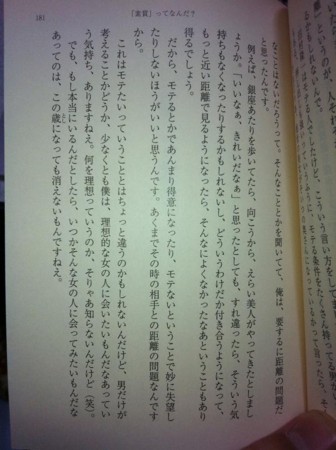 181 「資質」ってなんだ?
なことはないだろうって。そんなことを聞いてて、俺は、要するに距離の問題だ
と思ったんです。
例えば、銀座あたりを歩いてたら、向こうから、えらい美人がやってきたとしまし
ょうか。「いいなぁ、きれいだなぁ」と思ったとしても、すれ違ったら、そういう気
持ちもなくなったりするかもしれないし、どういうわけだか付き合うようになって、
もっと近い距離で見るようになったら、そんなによくなかったなあということもあり
得るでしょう。
だから、モテるとかであんまり得意になったり、モテないということで妙に失望し
たりしないほうがいいと思うんです。あくまでその時の相手との距離の問題なんです
から。
これはモテたいっていうこととはちょっと違うのかもしれないんだけど、男だけが
考えることかどうか、少なくとも僕は、理想的な女の人に会いたいもんだなあってい
う気持ち、ありますねえ。何を理想っていうのか、そりゃあ知らないんだけど（笑）。
でも、もし本当にいるんだとしたら、いつかそんな女の人に会ってみたいもんだな
あってのは、この歳になっても消えないもんですねえ。